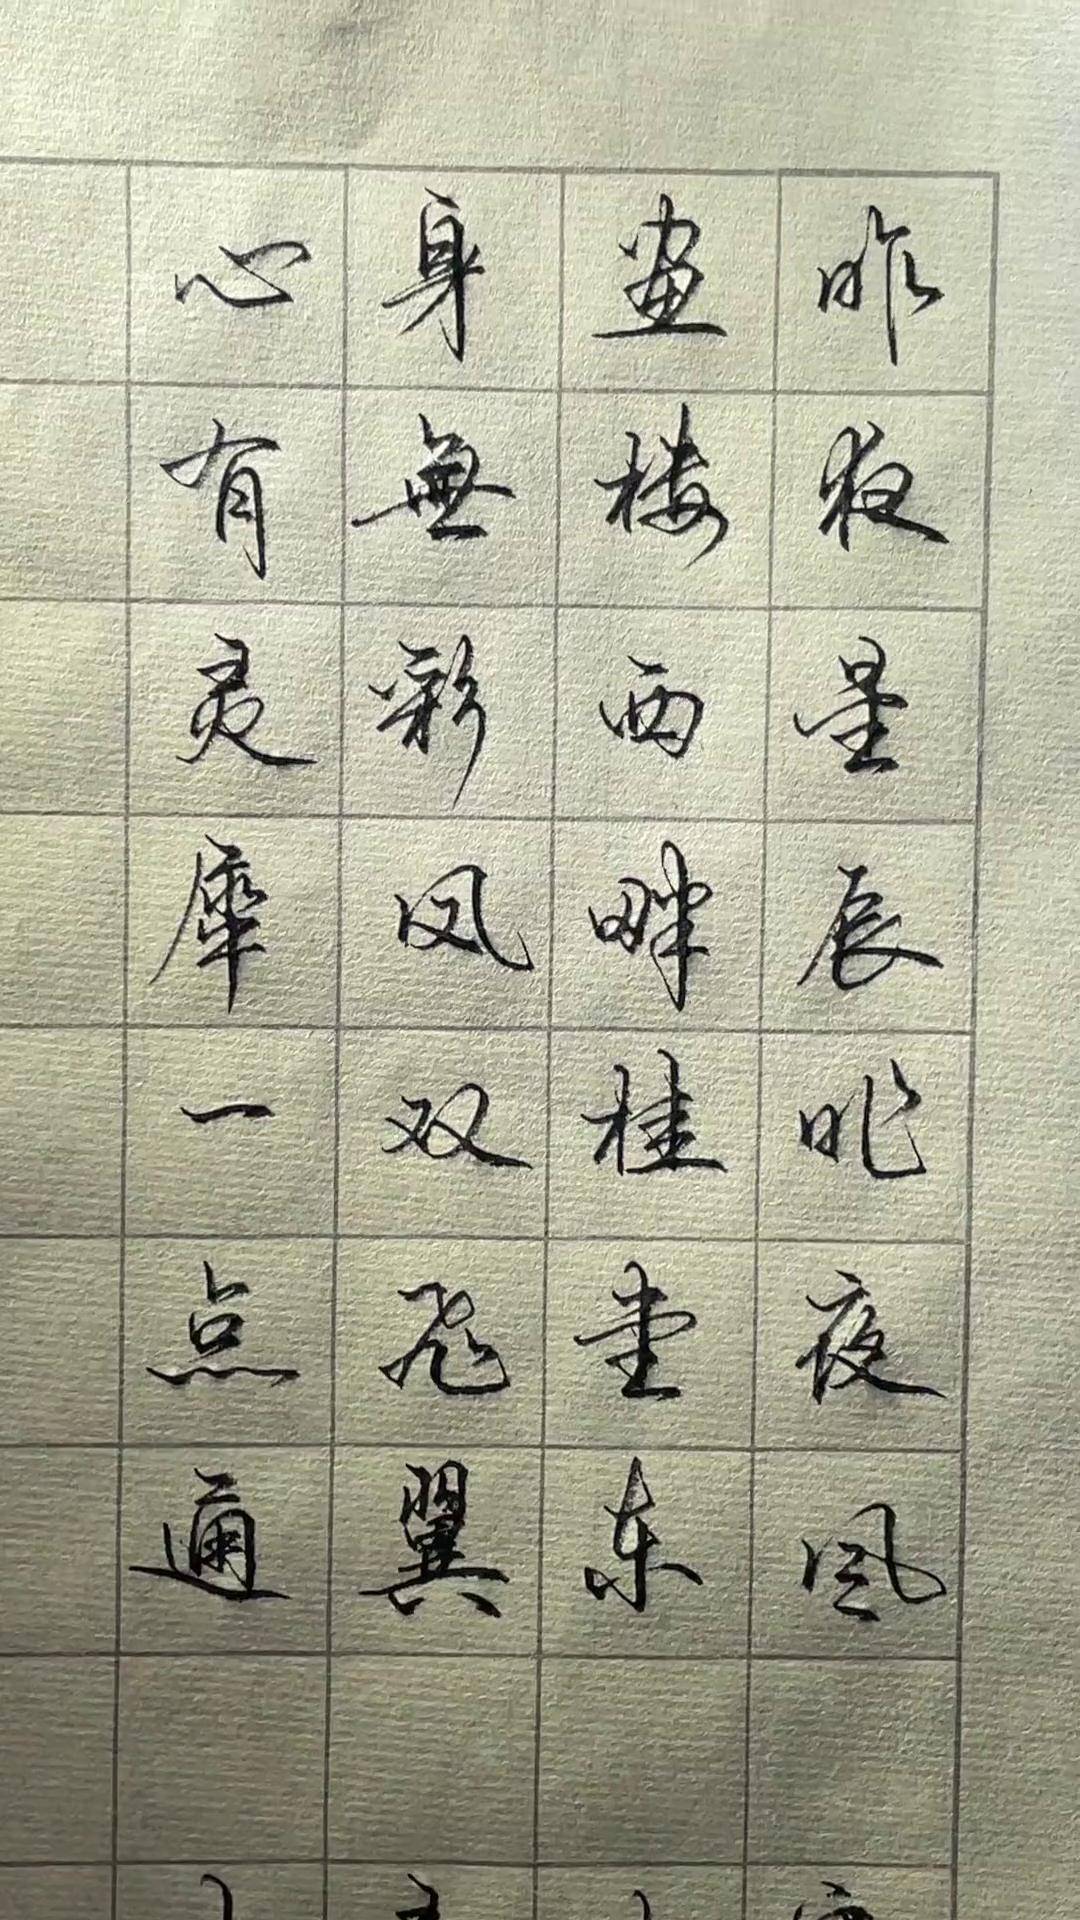 昨夜星辰昨夜风
画楼西畔桂堂东
身無彩凤双飞翼
心有灵犀一点通